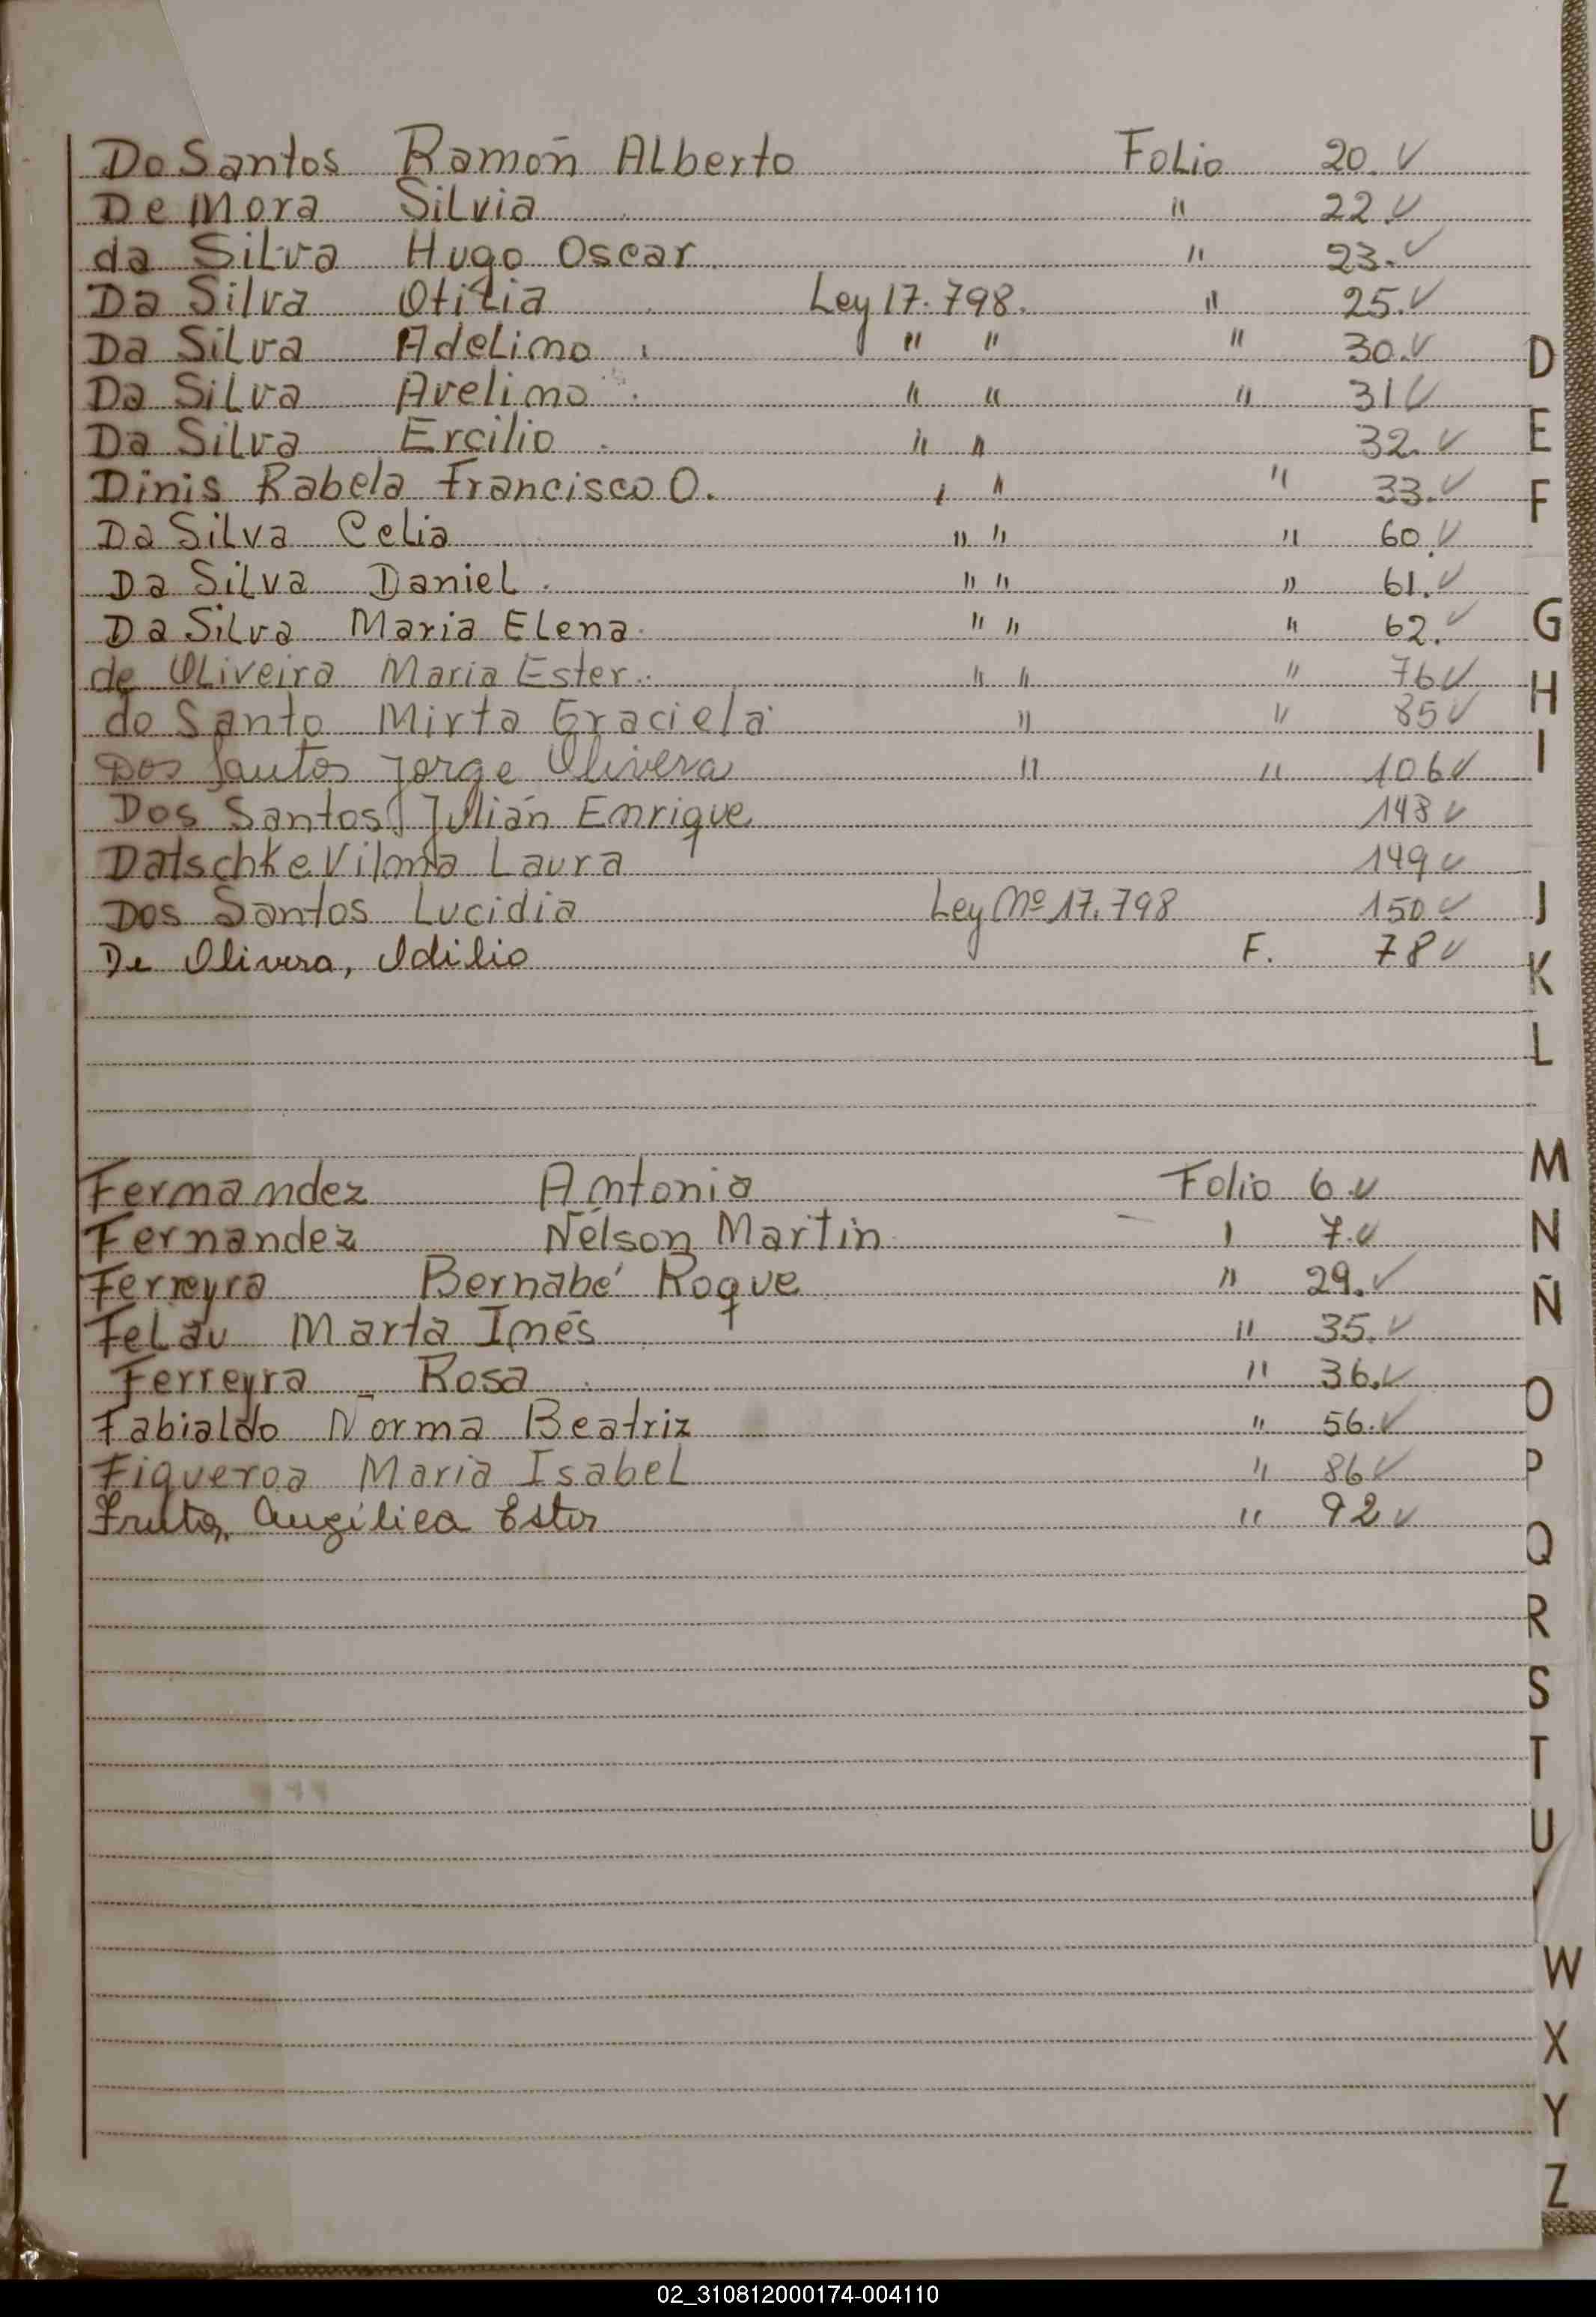 Do Santos Ramón Alberto Folio 20. ✓
De Mora Silvia " 22. ✓
da Silva Hugo Oscar " 23. ✓
Da Silva Otilia Ley 17.798. " 25. ✓
Da Silva Adelino " " " 30. ✓
Da Silva Avelino " " " 31 ✓
Da Silva Ercilio " " 32. ✓
Dinis Rabela Francisco O. " " " 33. ✓
Da Silva Celia " " " 60. ✓
Da Silva Daniel " " " 61. ✓
Da Silva Maria Elena " " " 62. ✓
de Oliveira Maria Ester " " " 76 ✓
do Santo Mirta Graciela " " 85 ✓
Dos Santos Jorge Olivera " " 106 ✓
Dos Santos Julián Enrique 143 ✓
Datschke Vilma Laura 149 ✓
Dos Santos Lucidia Ley Nº 17.798 150 ✓
De Olivera, Odilio F. 78 ✓
Fernandez Antonia Folio 6. ✓
Fernandez Nélson Martin " 7. ✓
Ferreyra Bernabé Roque " 29. ✓
Felau Marta Inés " 35. ✓
Ferreyra - Rosa " 36. ✓
Fabialdo Norma Beatriz " 56. ✓
Figueroa Maria Isabel " 86 ✓
Fruto, Angélica Ester " 92 ✓
D
E
F
G
H
I
J
K
L
M
N
Ñ
O
P
Q
R
S
T
U
W
X
Y
Z
02_310812000174-004110